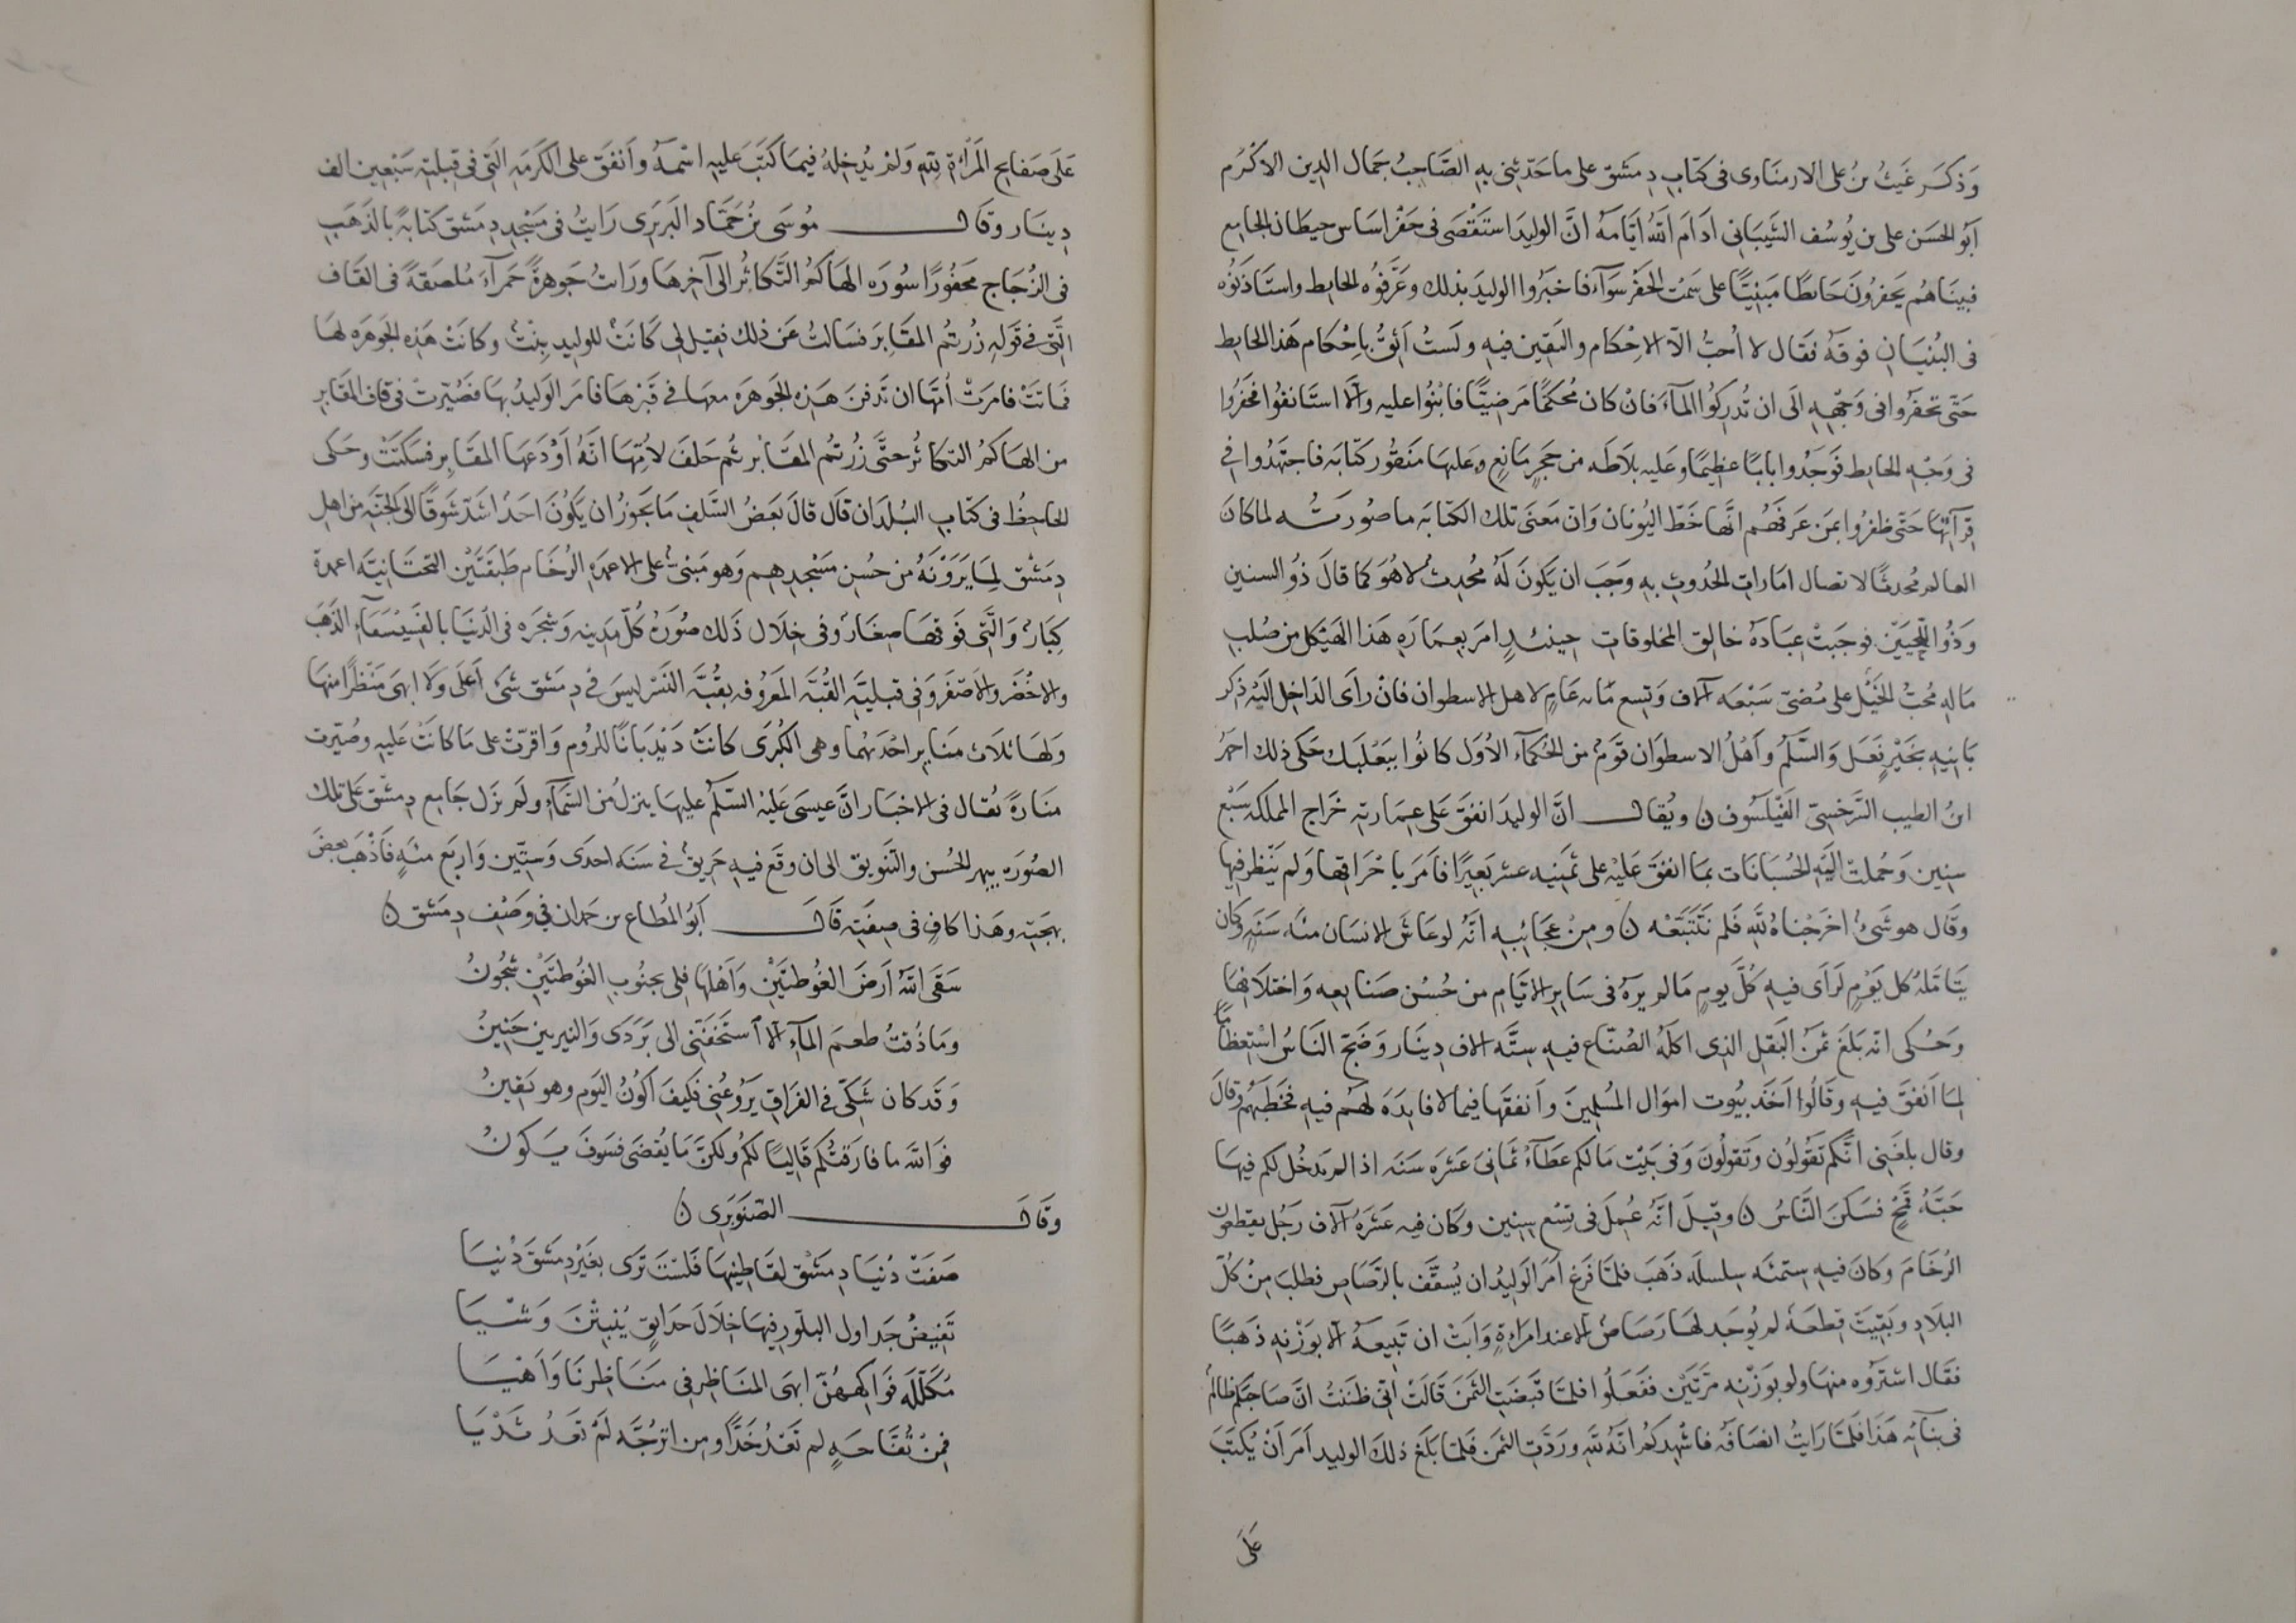 وَذكَر غَيثُ بنُ على الارمنَاوى فى كتَابِ دِمَشق على ما حَدّثنى بهِ الصَّاحِبُ جَمال الدِين الاكْرُم
ابُو الحسَن على بن يُوسُف الشَّيبَانى ادَامَ اللهُ ايَّامهُ انَّ الوليدَ استَقْصَى فى حَفْر اسَاس حيطان الجامِع
فبينَا هُم يَحفرُونَ حَايطًا مَبنِيًّا على سَمْت الحَفْر سَوآء فاخبَرُوا الوليدَ بذلك وعَرَّفوُه الحايط واستَاذَنوُه
فى البُنيَانِ فوقَهُ فقَال لا أحِبُّ الاّ الاِحْكام واليَقين فيهِ ولَستُ أثِقُ بِاحْكَام هَذا الحَايط
حَتّى تحفرُوا فى وَجْههِ الَى ان تُدرِكوُا المآءَ فانْ كان مُحكَمًا مَرضِيًّا فابْنُوا عليه وَالّا استَانفوُا فحَفَرُوا
فى وَجْهِ الحايط فوَجَدُوا بابًا عظيمًا وعليه بلَاطَه من حَجرٍ مَانِعٍ وعَليهَا منَقوُر كتَابَه فاجتهَدُوا فى
قِرآءتِهَا حَتّى ظفرُوا بمَن عَرفهُم انَّها خَطّ اليُونان وَانّ معنَى تلك الكتابَه ما صُورَتُه لمَا كانَ
العالمُ مُحدثًا لاتصال امَاراتِ الحُدوثِ بهِ وَجَبَ ان يَكونَ لَهُ مُحدِثٌ لا هُوَ كما قالَ ذُو السنين
وَذُو اللّحيَين فوجَبتْ عِبَادَهُ خالِق المخلوقات حِينئذٍ امرَ بعمَارَهِ هَذا الهَيْكل من صُلبِ
مَالهِ مُحِبُّ الخَيْل على مُضىّ سَبْعَه آلاف وَتِسع مَائه عَامٍ لاهل الاسطوان فانْ رأى الدَاخِل اليْهِ ذكر
بَانِيهِ بخَيْرٍ فَعَل وَالسَّلم وأهْلُ الاسطوَان قوَمٌ من الحُكمآء الاُوَل كانُوا ببَعْلبَك حَكى ذلك احمَدُ
ابنُ الطيب السَّرخسِىّ الفَيْلَسُوف ۞ ويُقال انَّ الوليدَ انفقَ عَلى عِمَارتهِ خَراج المملكهِ سَبْعَ
سِنِين وَحُملتْ اليْهِ الحُسبَانَات بمَا انفقَ عَليْهِ على ثمَنيه عشر بَعِيرًا فامَرَ باحْرَاقها وَلم يَنظر فيهَا
وقَال هو شَىءٌ اخرَجْنَاهُ للَّهِ فَلم نتَتَبَّعْه ۞ ومِنْ عجَائِبهِ انَّهُ لو عَاشَ الانسَان مئَه سَنَهٍ وَكان
يتَامَّلهُ كل يَوْمٍ لَرَأى فيهِ كُلَّ يومٍ مَا لم يرَهُ فى سَايرِ الايَّامِ من حُسْن صَنَايعِه وَاختلَافِهَا
وحُكى انّه بَلغَ ثمَن البَقلِ الذِى اكلهُ الصُنّاع فيهِ سِتَّه الاف دِينَار وَضَجّ النَاسُ استِعظامًا
لِمَا انفَقَ فيهِ وقَالُوا اَخَذ بيُوت اموَال المُسلِمِينَ وأنفقَهَا فيما لا فايدَهَ لهُم فيهِ فخَطبَهُم وقالَ
وقال بلغَنى انّكم تَقوُلُون وَتَقولُونَ وَفى بَيْت مَالكم عَطَآءُ ثمَانىَ عَشرَه سَنَه اذا لم يَدخُل لكم فيهَا
حَبَّهُ قمْحٍ فسَكنَ النَّاسُ ۞ وقيلَ انّهُ عُمِلَ فى تِسْع سِنِين وَكان فيه عَشرَهُ آلاف رَجُل يقطعون
الرخَامَ وَكانَ فيهِ ستمئَه سِلسلَه ذَهَبَ فلمّا فرَغ اَمَرَ الوَليدُ ان يُسقَّف بالرَّصَاصِ فطلبَ مِنْ كُلّ
البلَادِ وَبَقِيَتْ قِطعَهٌ لم يُوجَد لهَا رَصَاصٌ الا عند امرَاةٍ وَابَتْ ان تَبِيعهُ الا بوَزْنهِ ذهَبًا
فقَال اشترُوه منهَا ولو بوَزْنهِ مرّتَيْن ففَعَلُوا فلمّا قبَضَتِ الثمَنَ قالَتْ انّى ظنَنتُ انّ صَاحبَكم ظالمٌ
فى بنَآئهِ هَذَا فَلَمّا رَايتُ انصَافَهُ فاشْهِدكم انّهُ للّهِ ورَدَّتِ الثمَن فَلمّا بَلغَ ذلكَ الوليد امَرَ أنْ يُكتَبَ
عَلَى
عَلَى صَفايح المَرْاةِ للّهِ وَلمْ يُدخِلهُ فيمَا كتَبَ عليهِ اسْمهُ وأنفَقَ على الكَرْمَهِ التى فى قِبلتِه سَبْعِين الف
دِينَار وقَال مُوسَى بْنُ حَمَّاد البَربَرى رَايتُ فى مَسْجِدِ دِمَشق كتَابهً بالذَهَبِ
فى الزُجَاج مَحفُورًا سُورَه الهَاكُمُ التَّكاثُر الى آخرِهَا ورَايتُ جَوهرةً حَمرآءَ مُلصَقةً فى القَاف
التى فى قَولِهِ زُرْتُم المقَابِرَ فسَالتُ عَن ذلك فقيل لى كَانَتْ للوليدِ بِنْتٌ وكانَتْ هَذهِ الجَوهَرَه لهَا
فمَاتَتْ فامَرَتْ اُمّهَا ان تدفنَ هَذهِ الجَوهرَه معهَا فى قَبْرِهَا فامَر الوَليدُ بهَا فصُيّرتْ فى قاف المقَابرِ
من الهَاكمُ التكَاثُر حتَّى زُرْتُم المقَابر ثم حَلفَ لاُمّهَا انَّهُ اوْدَعَهَا المقَابِر فسَكنَتْ وحَكى
الجاحِظُ فى كتَاب البُلدَان قالَ قالَ بَعضُ السَّلفِ مَا يَجوزُ ان يَكُونَ احَدٌ اشَدّ شَوقًا الَى الجَنَّه من اهلِ
دِمَشق لِمَا يَرَوْنَهُ من حُسنِ مَسْجدِهِم وَهو مَبْنىٌّ على الاعمِدَه الرُخَام طَبقَتَيْن التحتَانيَّه اعمِدة
كِبَارٌ وَالتى فَوقهَا صِغَارٌ وفى خِلَال ذَلك صُورَهُ كُلّ مدِينه وَشجَره فى الدُنيَا بالفَسَيْفسَآءِ الذَهَب
والاخْضَر والاَصفَر وَفى قبليَّه القُبَّه المَعرُوفه بقُبَّه النَسْر ليسَ فى دِمَشق شَىءٌ اَعلَى وَلا ابهَى مَنظَرًا منهَا
وَلهَا ثلَاث مَنَاير احْدَيهُما وهى الكُبْرَى كانَتْ دَيْدَبَانًا للرُوم وَاقرّتْ على مَا كانَتْ عَليهِ وصُيّرت
مَنَارةً يُقال فى الاخبَار انَّ عيسَى عَليْهِ السَّلَم عليهَا ينزلُ من السَّمآءِ ولم يزَل جَامع دِمشْق عَلى تلك
الصُورَه يبهر للحُسن والتَّنويق الى ان وقَع فيهِ حَرِيقٌ فى سَنَه احدَى وَستّين وَاربَع مئَهٍ فَاذْهَبَ بعضَ
بَهجَتِه وهَذا كافٍ فى صِفَتِه قَالَ ابُو المُطَاع بن حَمدان فى وَصْفِ دِمَشق ۞
سَقَى اللهُ اَرضَ الغُوطَتَيْنِ وَاَهْلهَا فلى بجنُوبِ الغُوطتَيْنِ شجُونُ
وَمَا ذُقتُ طعمَ المآءِ الا استَخفَّنى الى بَرَدَى وَالنيربين حَنِينُ
وَقَد كان شَكّى فى الفرَاقِ يَرُوعُنى فكَيفَ اكُونُ اليَوم وهو يَقينُ
فوَاللهِ ما فارَقتُكم قَاليًا لكُم ولكنَّ مَا يُقضَى فسَوفَ يَكونُ
وقَالَ الصّنَوبَرى ۞
صَفَتْ دُنيَا دِمَشْق لقَاطِنِيهَا فَلسْتَ تَرَى بغَيْرِ دِمَشقَ دُنيَا
تَفِيضُ جَدَاول البلّورِ فيهَا خِلَالَ حَدَايقٍ يُنبِتْنَ وَشْيَا
مُكلّلَه فوَاكِههُنَّ ابهَى المنَاظِرِ فى مَنَاظِرنَا وَاَهْيَا
فمِنْ تُفّاحَهٍ لم تَعْدُ خَدًّا ومِن اترُجَّه لَمْ تعَدُ ثَدْيَا